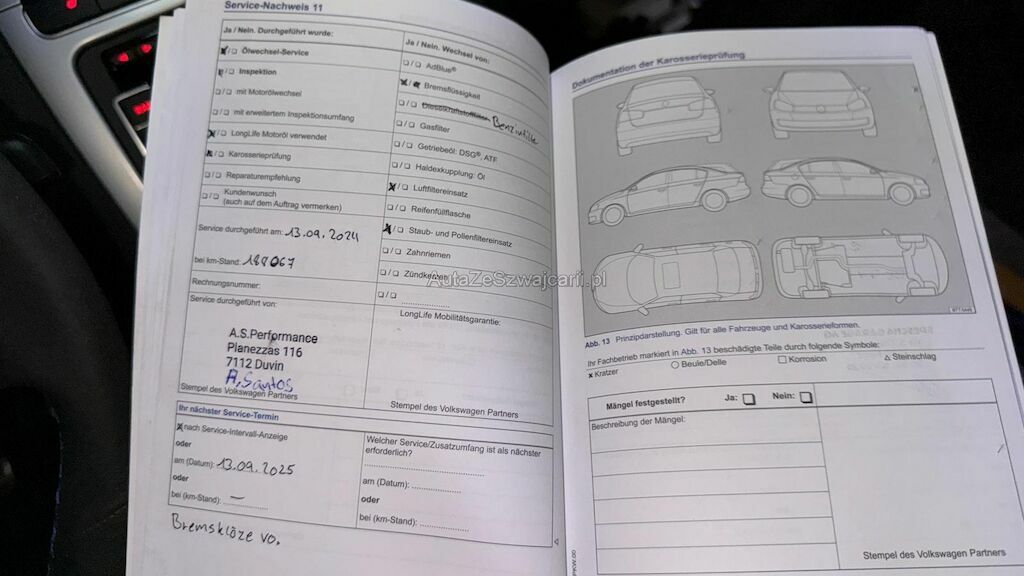 Service-Nachweis 11
Ja / Nein. Durchgeführt wurde:
Ölwechsel-Service
Inspektion
mit Motorölwechsel
mit erweitertem Inspektionsumfang
LongLife Motoröl verwendet
Karosserieprüfung
Reparaturempfehlung
Kundenwunsch
(auch auf dem Auftrag vermerken)
Service durchgeführt am: 13.09.2024
bei km-Stand: 188067
Rechnungsnummer:
Service durchgeführt von:
A.S.Performance
Planezzas 116
7112 Duvin
A. Santos
Stempel des Volkswagen Partners
Ja / Nein. Wechsel von:
AdBlue®
Bremsflüssigkeit
Dieselkraftstofffilter Benzinfilter
Gasfilter
Getriebeöl: DSG®, ATF
Haldexkupplung: Öl
Luftfiltereinsatz
Reifenfüllflasche
Staub- und Pollenfiltereinsatz
Zahnriemen
Zündkerzen
LongLife Mobilitätsgarantie:
Stempel des Volkswagen Partners
Ihr nächster Service-Termin
nach Service-Intervall-Anzeige
oder
am (Datum): 13.09.2025
oder
bei (km-Stand): —
Welcher Service/Zusatzumfang ist als nächster
erforderlich?
am (Datum):
oder
bei (km-Stand):
Bremsklöze vo.
Dokumentation der Karosserieprüfung
Abb. 13 Prinzipdarstellung. Gilt für alle Fahrzeuge und Karosserieformen.
Ihr Fachbetrieb markiert in Abb. 13 beschädigte Teile durch folgende Symbole:
x Kratzer ○ Beule/Delle □ Korrosion △ Steinschlag
Mängel festgestellt? Ja: Nein:
Beschreibung der Mängel:
Stempel des Volkswagen Partners
AutaZeSzwajcarii.pl